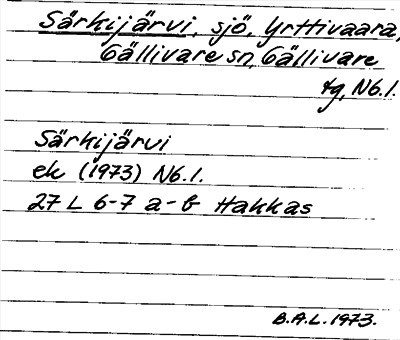 Särkijärvi, sjö, Yrttivaara,
Gällivare sn, Gällivare
tg, Nb.l.
Särkijärvi
ek (1973) Nb.l.
27 L 6-7 a-b Hakkas
B.A.L. 1973.